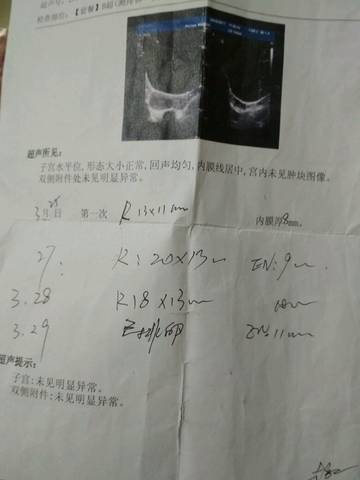 检查部位:【套餐】B超(测排
超声所见:
子宫水平位,形态大小正常,回声均匀,内膜线居中,宫内未见肿块图像。
双侧附件处未见明显异常。
3月25日 第一次 R 13×11mm 内膜厚8mm。
27: R: 20×13 EN: 9
3.28 R 18×13
3.29 已排卵 EN: 11
超声提示:
子宫:未见明显异常。
双侧附件:未见明显异常。